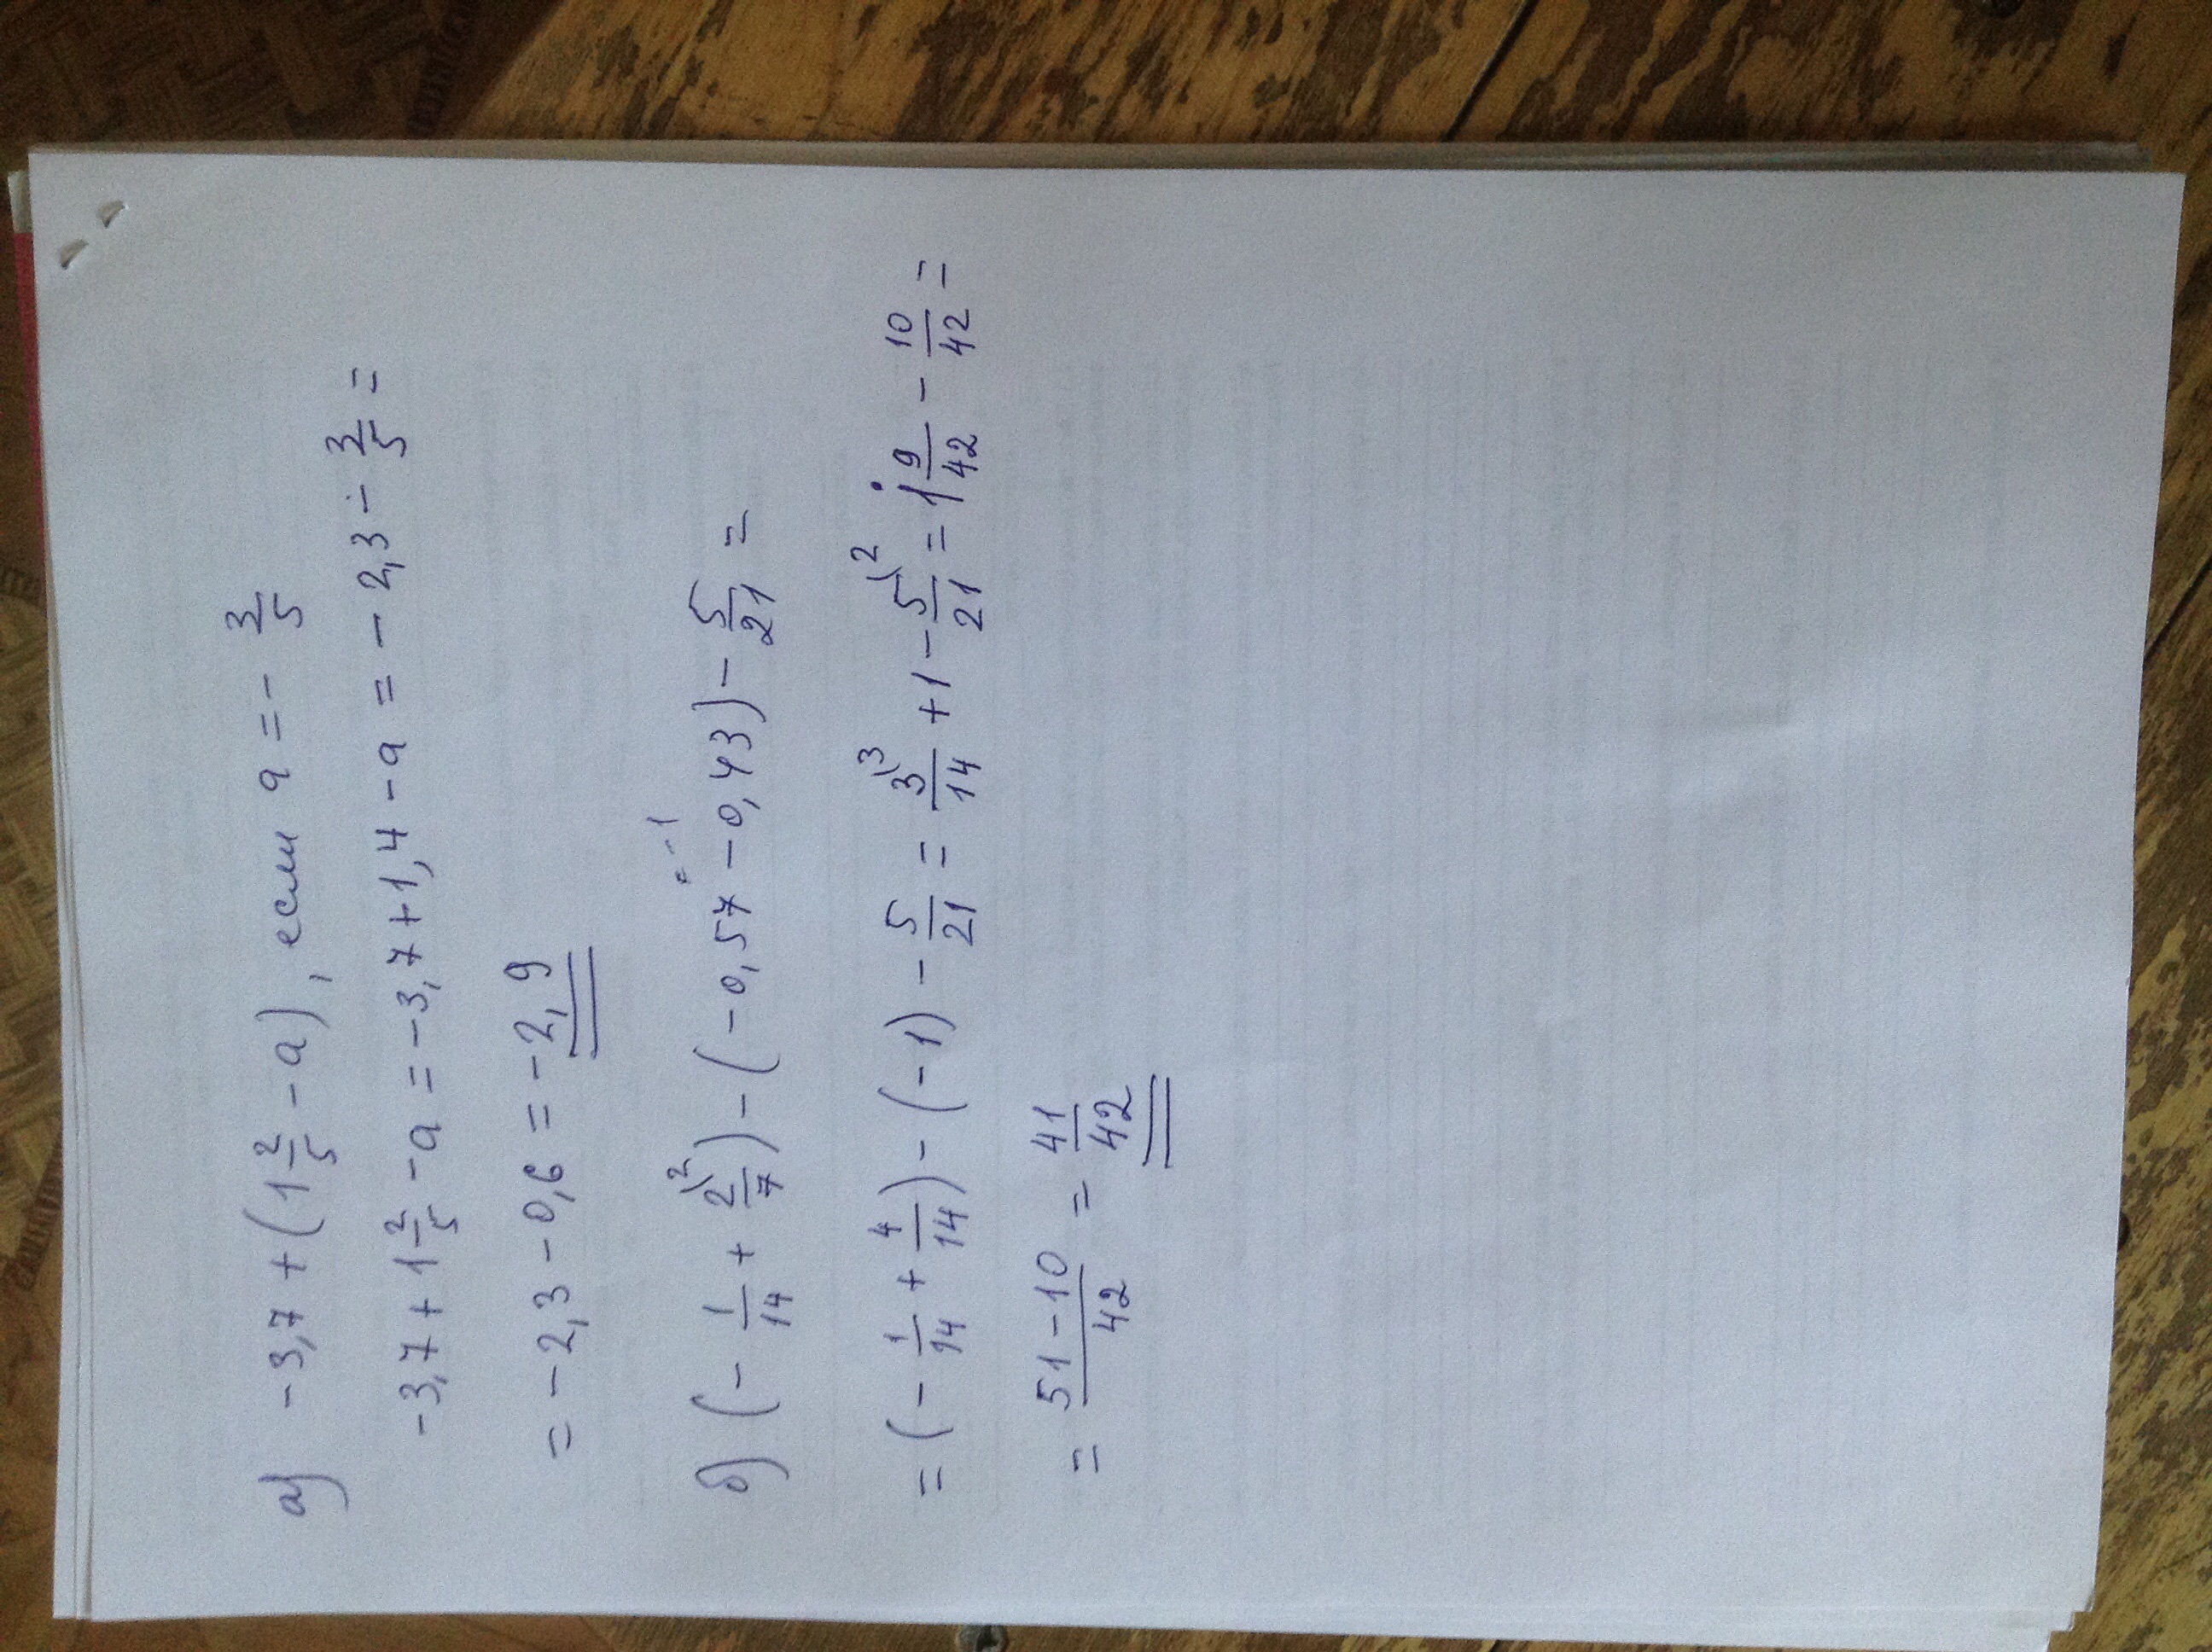 а) -3,7 + (1 2/5 - a), если a = - 3/5
-3,7 + 1 2/5 - a = -3,7 + 1,4 - a = - 2,3 - 3/5 =
= - 2,3 - 0,6 = - 2,9
= - 1
б) (- 1/14 + 2\2/7) - (- 0,57 - 0,43) - 5/21 =
= (- 1/14 + 4/14) - (-1) - 5/21 = 3\3/14 + 1 - 5\2/21 = 1 9/42 - 10/42 =
= 51 - 10/42 = 41/42